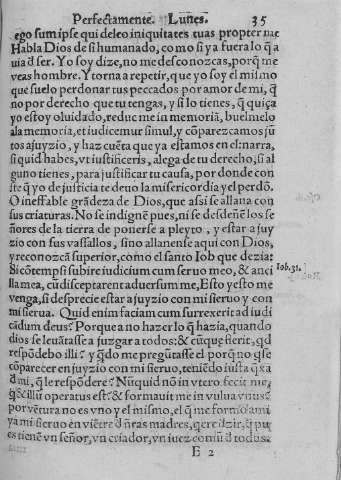 Perfectamente. Lunes. 35
ego sum ipse qui deleo iniquitates tuas propter me
Habla Dios de si humanado, como si ya fuera lo q̃ a
uia d̃ ser. Yo soy dize, no me desconozcas, porq̃ me
veas hombre. Y torna a repetir, que yo soy el mismo
que suelo perdonar tus peccados por amor de mi, q̃
no por derecho que tu tengas, y si lo tienes, q̃ quiça
yo estoy oluidado, reduc me in memoriã, buelmelo
a la memoria, et iudicemur simul, y cõparezcamos jũ
tos a juyzio, y haz cuẽta que ya estamos en el: narra,
si quid habes, vt iustificeris, alega de tu derecho, si al
guno tienes, para justificar tu causa, por donde con
ste q̃ yo de justicia te deuo la misericordia y el perdõ.
O ineffable grãdeza de Dios, que assi se allana con
sus criaturas. No se indignẽ pues, ni se desdeñẽ los se
ñores de la tierra de ponerse a pleyto, y estar a juy
zio con sus vassallos, sino allanense aqui con Dios,
y reconozcã superior, como el santo Iob que dezia:
Si cõtempsi subire iudicium cum seruo meo, & anci
lla mea, cũ disceptarent aduersum me, Esto y esto me
venga, si despreciè estar a juyzio con mi sieruo y con
mi sierua. Quid enim faciam cum surrexerit ad iudi
cãdum deus? Porque a no hazer lo q̃ hazia, quando
dios se leuãtasse a juzgar a todos: & cũ quęsierit, qd
respõdebo illi? y q̃do me pregũtasse el porq̃ no q̃se
cõparecer en juyzio con mi sieruo, teniẽdo iusta q̃xa
d̃ mi, q̃ le respõdere? Nũquid nõ in vtero fecit me,
q̃ & illũ operatus est? & formauit me in vulua vnus?
por vẽtura no es vno y el mismo, el q̃ me formó a mi
y a mi sieruo en viẽtre d̃ nr̃as madres, qere dzir, q̃ pu
es tienẽ vn señor, vn criador, vn iuez comũ d̃ todos.
Iob. 31.
E 2